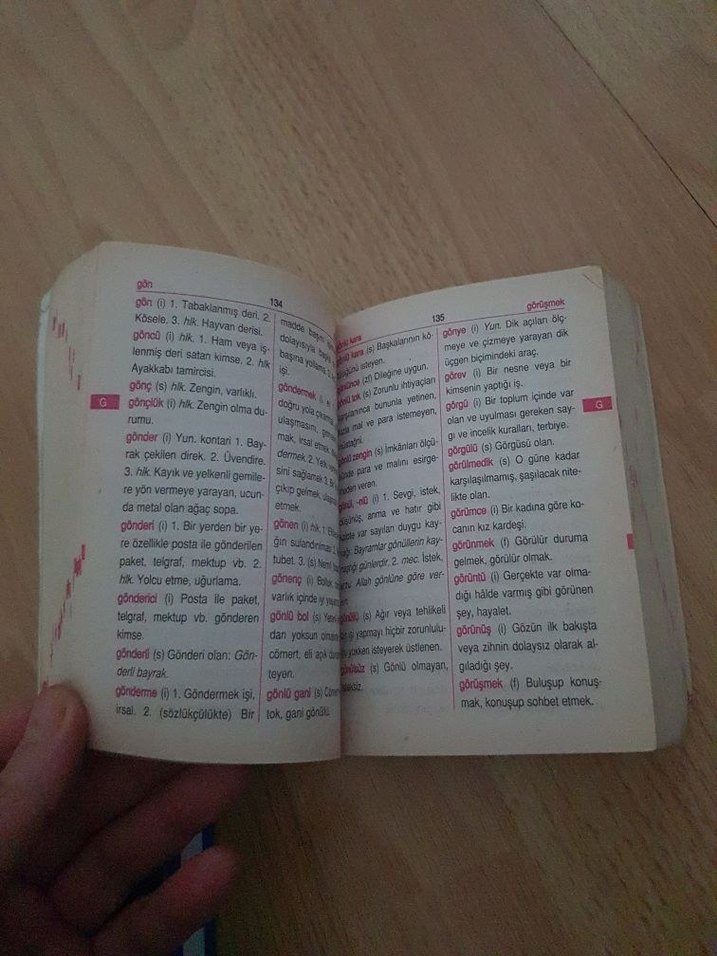 gön
134
gön (i) 1. Tabaklanmış deri. 2.
Kösele. 3. hlk. Hayvan derisi.
göncü (i) hlk. 1. Ham veya iş-
lenmiş deri satan kimse. 2. hlk
Ayakkabı tamircisi.
gönç (s) hlk. Zengin, varlıklı.
G
gönçlük (i) hlk. Zengin olma du-
rumu.
gönder (i) Yun. kontari 1. Bay-
rak çekilen direk. 2. Üvendire.
3. hlk. Kayık ve yelkenli gemile-
re yön vermeye yarayan, ucun-
da metal olan ağaç sopa.
gönderi (i) 1. Bir yerden bir ye-
re özellikle posta ile gönderilen
paket, telgraf, mektup vb. 2.
hlk. Yolcu etme, uğurlama.
gönderici (i) Posta ile paket,
telgraf, mektup vb. gönderen
kimse.
gönderli (s) Gönderi olan: Gön-
derli bayrak.
gönderme (i) 1. Göndermek işi,
irsal. 2. (sözlükçülükte) Bir
madde başın
dolayısıyla başka
başına yollama.
göndermek
doğru yola çıkarmak
ulaşmasını,
mak, irsal etmek.
dermek 2.
sini sağlamak 3.
çıkıp gelmek,
etmek.
gönen (i) hlk. 1.
ğın sulandırılması 2.
tubet. 3. (s) Nemli
gönenç (i) Bolluk,
varlık içinde iyi
gönlü bol (s)
dan yoksun
cömert, eli açık
teyen.
gönlü gani (s)
tok, gani gönüllü.
135
görüşmek
gönlü kara
gönlü kara (s) Başkalarının kö-
isteyen.
(zf) Dileğine uygun.
gönlü tok (s) Zorunlu ihtiyaçları
bununla yetinen,
mal ve para istemeyen,
gönlü zengin (s) İmkânları ölçü-
sünde para ve malını esirge-
meden veren.
gönül, -nlü (i) 1. Sevgi, istek,
düşünüş, anma ve hatır gibi
var sayılan duygu kay-
Bayramlar gönüllerin kay-
günlerdir. 2. mec. İstek,
Allah gönlüne göre ver-
gönüllü (s) Ağır veya tehlikeli
bir işi yapmayı hiçbir zorunlulu-
yokken isteyerek üstlenen.
gönülsüz (s) Gönlü olmayan,
isteksiz.
gönye (i) Yun. Dik açıları ölç-
meye ve çizmeye yarayan dik
üçgen biçimindeki araç.
görev (i) Bir nesne veya bir
kimsenin yaptığı iş.
G
görgü (i) Bir toplum içinde var
olan ve uyulması gereken say-
gı ve incelik kuralları, terbiye.
görgülü (s) Görgüsü olan.
görülmedik (s) O güne kadar
karşılaşılmamış, şaşılacak nite-
likte olan.
görümce (i) Bir kadına göre ko-
canın kız kardeşi.
görünmek (f) Görülür duruma
gelmek, görülür olmak.
görüntü (i) Gerçekte var olma-
dığı hâlde varmış gibi görünen
şey, hayalet.
görünüş (i) Gözün ilk bakışta
veya zihnin dolaysız olarak al-
gıladığı şey.
görüşmek (f) Buluşup konuş-
mak, konuşup sohbet etmek.